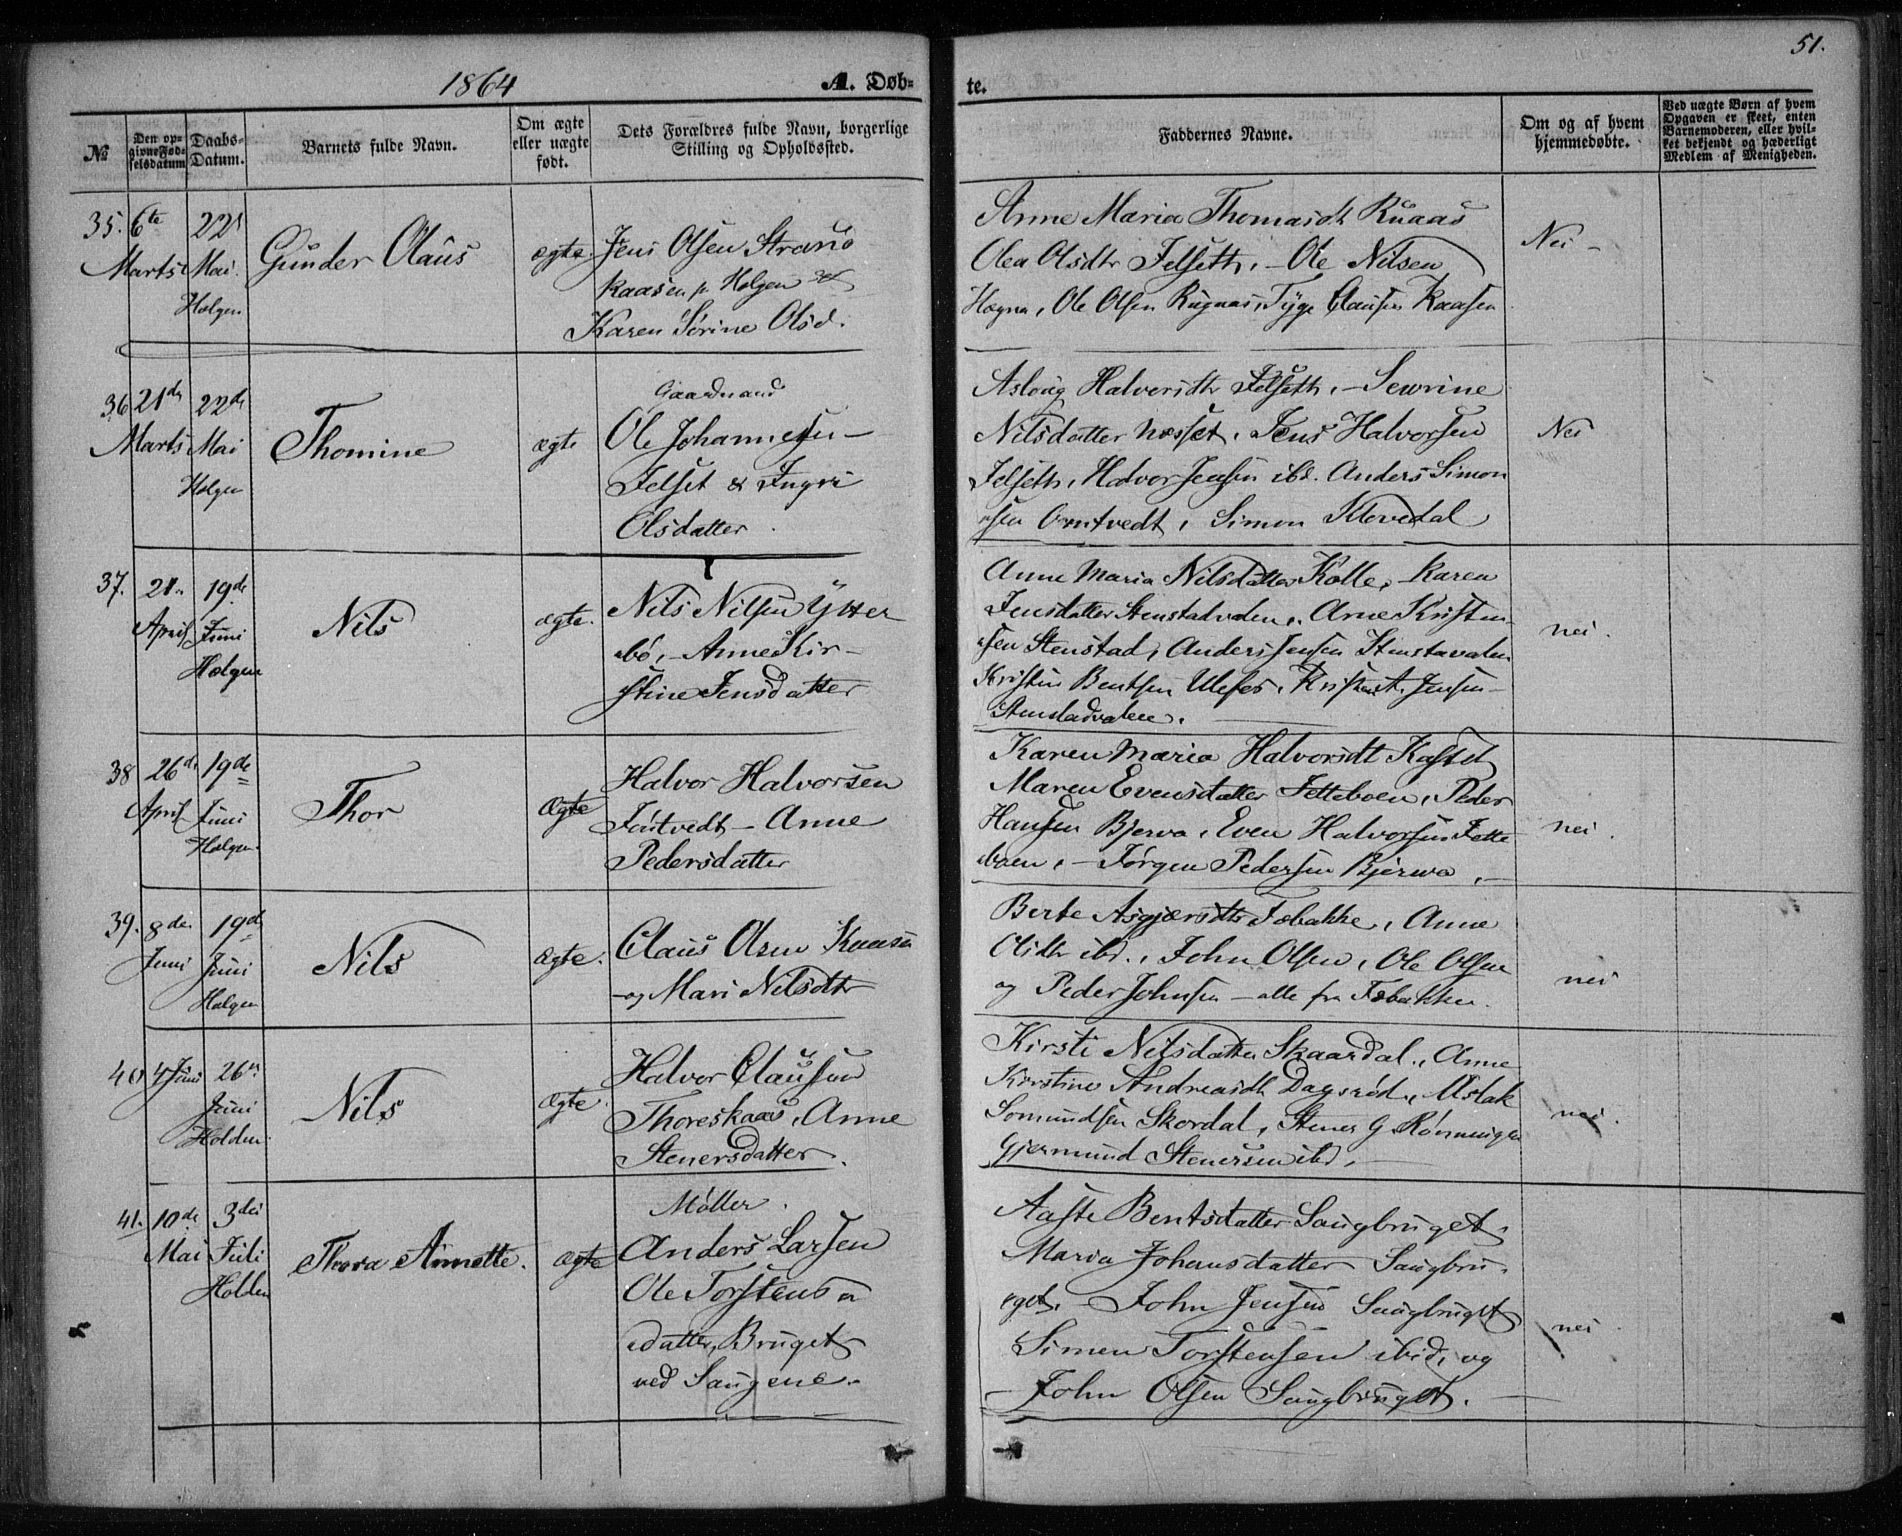 1864
A. Døb-
te.
51.
№
Den op-
givne Fød-
selsdatum
Daabs-
Datum.
Barnets fulde Navn.
Om ægte
eller uægte
født.
Dets Forældres fulde Navn, borgerlige
Stilling og Opholdssted.
Faddernes Navne.
Om og af hvem
hjemmedøbte.
Ved uægte Børn af hvem
Opgaven er skeet, enten
Barnemoderen, eller hvil-
ket bekjendt og hæderligt
Medlem af Menigheden.
35.
6te
Marts
22
Mai.
Holgen
Gunder Olaus
ægte
Jens Olsen Strans
kaasen p. Holgen
Karen Sørine Olsd.
Anne Maria Thomasdt Ruaas
Olea Olsdtr Jelseth, – Ole Nilsen
Hogna, Ole Olsen Rugaas, Tyge Clausen Kaasen
Nei –
36
21de
Marts
22de
Mai
Holgen
Thomine
ægte
Gaardmand
Ole Johannesen –
Jelset & Ingri
Olsdatter.
Aslaug Halversdtr Jelseth, – Sewrine
Nilsdatter Næsset, Jens Halvorsen
Jelseth, Halvor Jensen ibd. Anders Simon
sen Omtvedt, Simon Klevedal
Nei
37.
21
April
19de
Juni
Holgen
Nils
ægte.
Nils Nilsen Ytter
bø, – Anne Kir-
stine Jensdatter
Anne Maria Nilsdatter Kolle, Karen
Jensdatter Stenstadvalen, Arne Kristen
sen Stenstad, Anders Jensen Stenstavalen
Kristen Bentsen Ulefos, Jensen –
Stenstadvalen.
nei.
38
26de
April
19de
Juni
Holgen.
Thor
Ægte
Halvor Halvorsen
Jøntvedt – Anne
Pedersdatter
Karen Maria Halvorsdt Kasted
Maren Evensdatter Jetteboen, Peder
Hansen Bjerva, Even Halvorsen Jette
boen, – Jørgen Pedersen Bjerwa, –
nei.
39.
8de
Juni
19de
Juni
Holgen
Nils
Ægte.
Claus Olsen Kaasen
– og Mari Nilsdtr
Berte Asgjærsdtr Tobakke, Anne
Olsdtr ibd., John Olsen, Ole Olsen
og Peder Johnsen – alle fra Tobakken.
nei
40
4 Juni
26
Juni
Holden.
Nils
Ægte.
Halvor Clausen
Thoreskaas, Anne
Stenersdatter.
Kirsti Nilsdatter Skaardal, Anne
Kirstine Andreasdt Dagsrød, Aslak
Somundsen Skordal, Stener G. Rønningen
Gjermund Stenersen ibd, –
nei.
41.
10de
Mai
3die
Juli
Holden
Thora Annette.
ægte
Møller.
Anders Larsen
Ole Torstens
datter, Bruget
ved Saugene.
Aaste Bentsdatter Saugbruget,
Maria Johansdatter Saugbru-
get. – John Jensen Saugbruget
Simen Torstensen ibid, og
– John Olsen Saugbruget. –
nei.